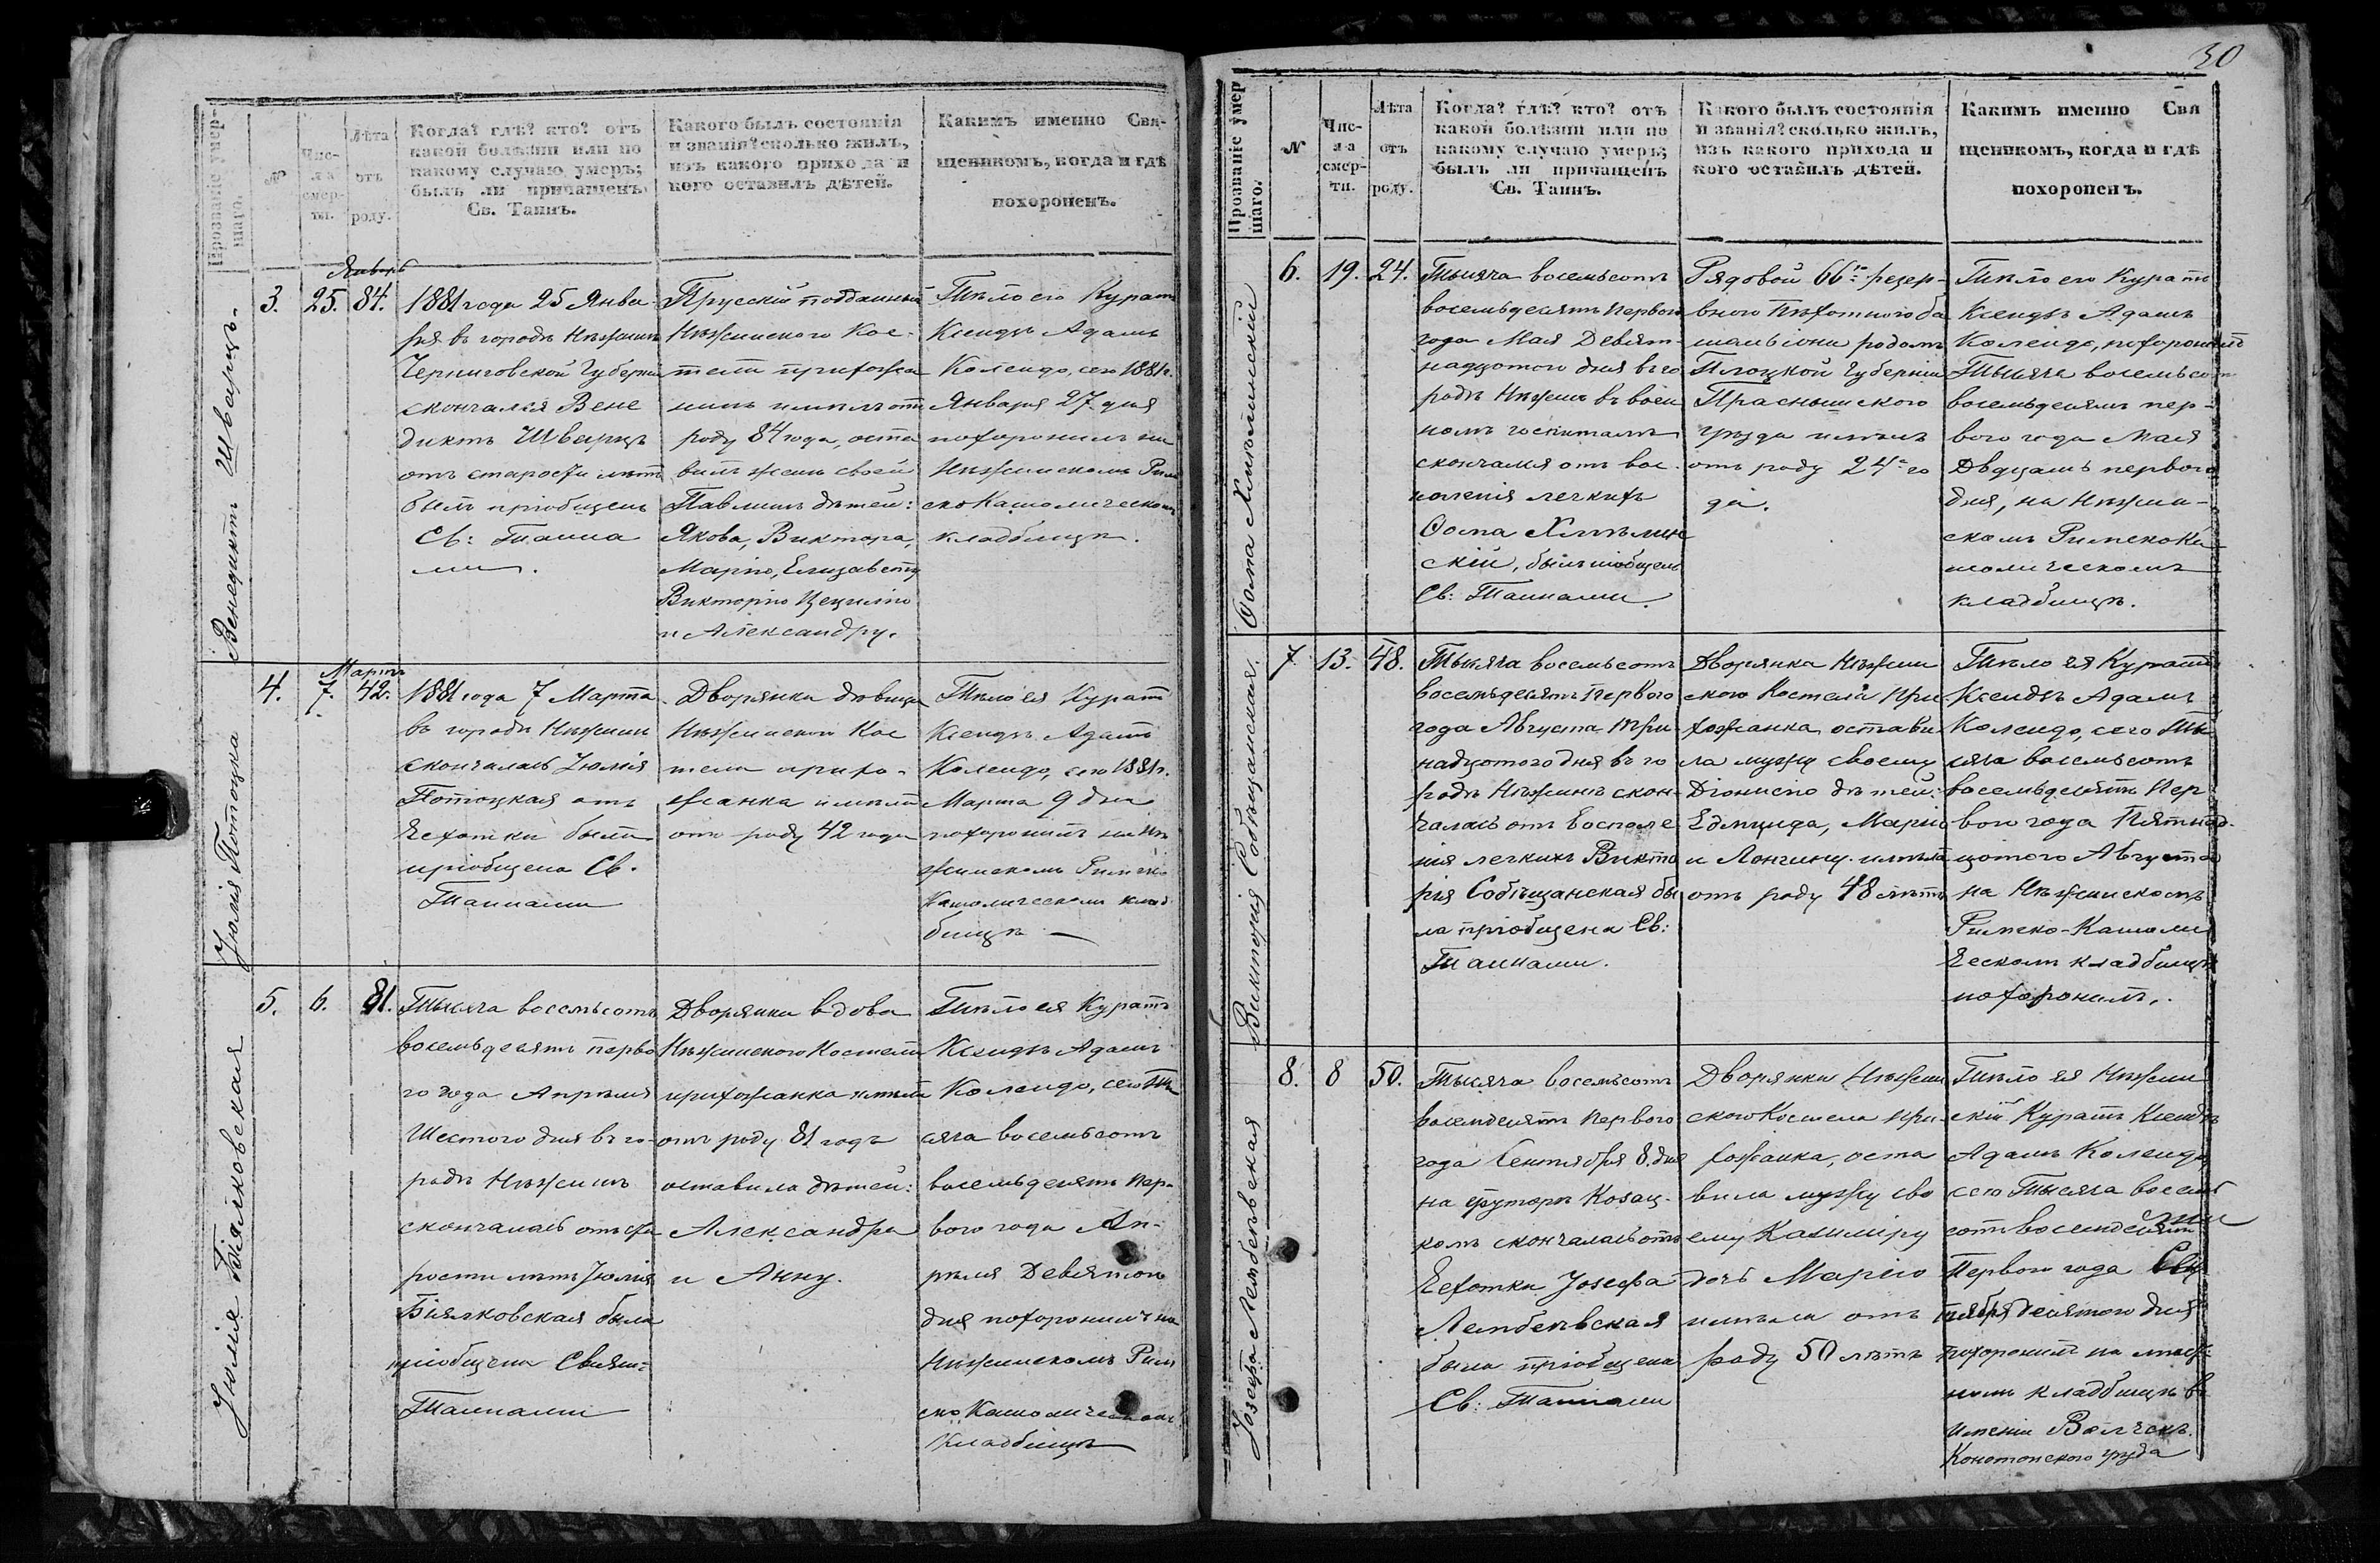 30
Прозваніе умер-
шаго.
№
Чис-
ла
смер-
ти.
Лѣта
отъ
роду.
Когда? гдѣ? кто? отъ
какой болѣзни или по
какому случаю умеръ;
былъ ли причащенъ
Св. Таинъ.
Какого былъ состоянія
и званія? сколько жилъ,
изъ какого прихода и
кого оставилъ дѣтей.
Какимъ именно Свя-
щенникомъ, когда и гдѣ
похороненъ.
Венедиктъ Шварцъ.
Январь
3. 25. 84.
1881 года 25 Янва-
ря въ городѣ Нѣжинѣ
Черниговской Губерніи
скончался Вене
диктъ Шварцъ
отъ старости лѣтъ
былъ пріобщенъ
Св: Таина
ми.
Прусскій подданный
Нѣжинскаго Кос-
тела прихожа
нинъ имѣлъ отъ
роду 84 года, оста
вилъ жены своей
Павлины дѣтей:
Якова, Виктора,
Марію, Елизавету
Викторію Цецилію
и Александру.
Тѣло его Куратъ
Ксендзъ Адамъ
Колендо, сего 1881 г.
Января 27 дня
похоронилъ на
Нѣжинскомъ Рим
ско Католическомъ
кладбищѣ.
Юлія Потоцка
Мартъ
4. 7. 42.
1881 года 7 Марта
въ городѣ Нѣжинѣ
скончалась Юлія
Потоцкая отъ
Чехотки была
пріобщена Св.
Таинами
Дворянка дѣвица
Нѣжинскаго Кос
тела прихо-
жанка имѣла
отъ роду 42 года
Тѣло ея Куратъ
Ксендзъ Адамъ
Колендо, сего 1881 г.
Марта 9 дня
похоронилъ на Нѣ
жинскомъ Римско
Католическомъ клад
бищѣ —
Юлія Бялковская
5. 6. 81.
Тысяча восемьсотъ
восемьдесятъ перво
го года Апрѣля
Шестого дня въ го-
родѣ Нѣжинѣ
скончалась отъ ста
рости лѣтъ Юлія
Бялковская была
пріобщена Святы:
Таинами
Дворянка вдова
Нѣжинскаго Костела
прихожанка имѣла
отъ роду 81 годъ
оставила дѣтей:
Александра
и Анну.
Тѣло ея Куратъ
Ксендзъ Адамъ
Колендо, сего Ты
сяча восемьсотъ
восемьдесятъ пер-
вого года Ап-
рѣля Девятого
дня похоронилъ на
Нѣжинскомъ Рим
ско Католическомъ
Кладбищѣ
Прозваніе умер
шаго.
№
Чис-
ла
смер-
ти.
Лѣта
отъ
роду.
Когда? гдѣ? кто? отъ
какой болѣзни или по
какому случаю умеръ;
былъ ли причащенъ
Св. Таинъ.
Какого былъ состоянія
и званія? сколько жилъ,
изъ какого прихода и
кого оставилъ дѣтей.
Какимъ именно Свя
щенникомъ, когда и гдѣ
похороненъ.
Фома Хмѣлинскій
6. 19. 24.
Тысяча восемьсотъ
восемьдесятъ Первого
года Мая Девят-
надцотого дня въ го
родѣ Нѣжинѣ въ воен
номъ госпиталѣ
скончался отъ вос-
паленія легкихъ
Фома Хмѣлин
скій, былъ пріобщенъ
Св: Таинами.
Рядовой 66го резер-
вного Пѣхотного ба
таліона родомъ
Плоцкой Губерніи
Праснышского
уѣзда имѣлъ
отъ роду 24 го
да.
Тѣло его Куратъ
Ксендзъ Адамъ
Колендо, похоронилъ
Тысяча восемьсотъ
восемьдесятъ пер-
вого года Мая
Двдцать первого
дня, на Нѣжин-
скомъ Римско Ка
толическомъ
кладбищѣ.
Викторія Собѣщанская.
7 13. 48.
Тысяча восемьсотъ
восемьдесятъ Первого
года Августа Три-
надцотого дня въ го
родѣ Нѣжинѣ скон-
чалась отъ Воспале
нія легкихъ Викто
рія Собѣщанская бы
ла пріобщена Св:
Таинами.
Дворянка Нѣжин
ского Костела При
хожанка остави
ла мужу своему
Діонисію дѣтей:
Едмунда, Марію
и Лонгину имѣла
отъ роду 48 лѣтъ
Тѣло ея Куратъ
Ксендзъ Адамъ
Колендо, сего Ты
сяча восемьсотъ
восемьдесятъ Пер
вого года Пятнад-
цотого Августа
на Нѣжинскомъ
Римско-Католи
ческомъ кладбищѣ
похоронилъ.
Josефа Лембевская
8. 8 50.
Тысяча восемьсотъ
восемдесятъ Первого
года Сентября 8. дня
на Хуторѣ Козац-
комъ скончалась отъ
Чехотки Josефа
Лембевская
была пріобщена
Св: Таинами
Дворянка Нѣжин
ского Костела При-
хожанка, оста
вила мужу сво
ему Казиміру
дочь Марію
имѣла отъ
роду 50 лѣтъ
Тѣло ея Нѣжин
скій Куратъ Ксендзъ
Адамъ Колендо,
сего Тысяча восемь
сотъ восемдесятъ
Первого года Сен
тября десятого дня
похоронилъ на мѣст
номъ кладбищѣ въ
имѣніи
Конотопского уѣзда